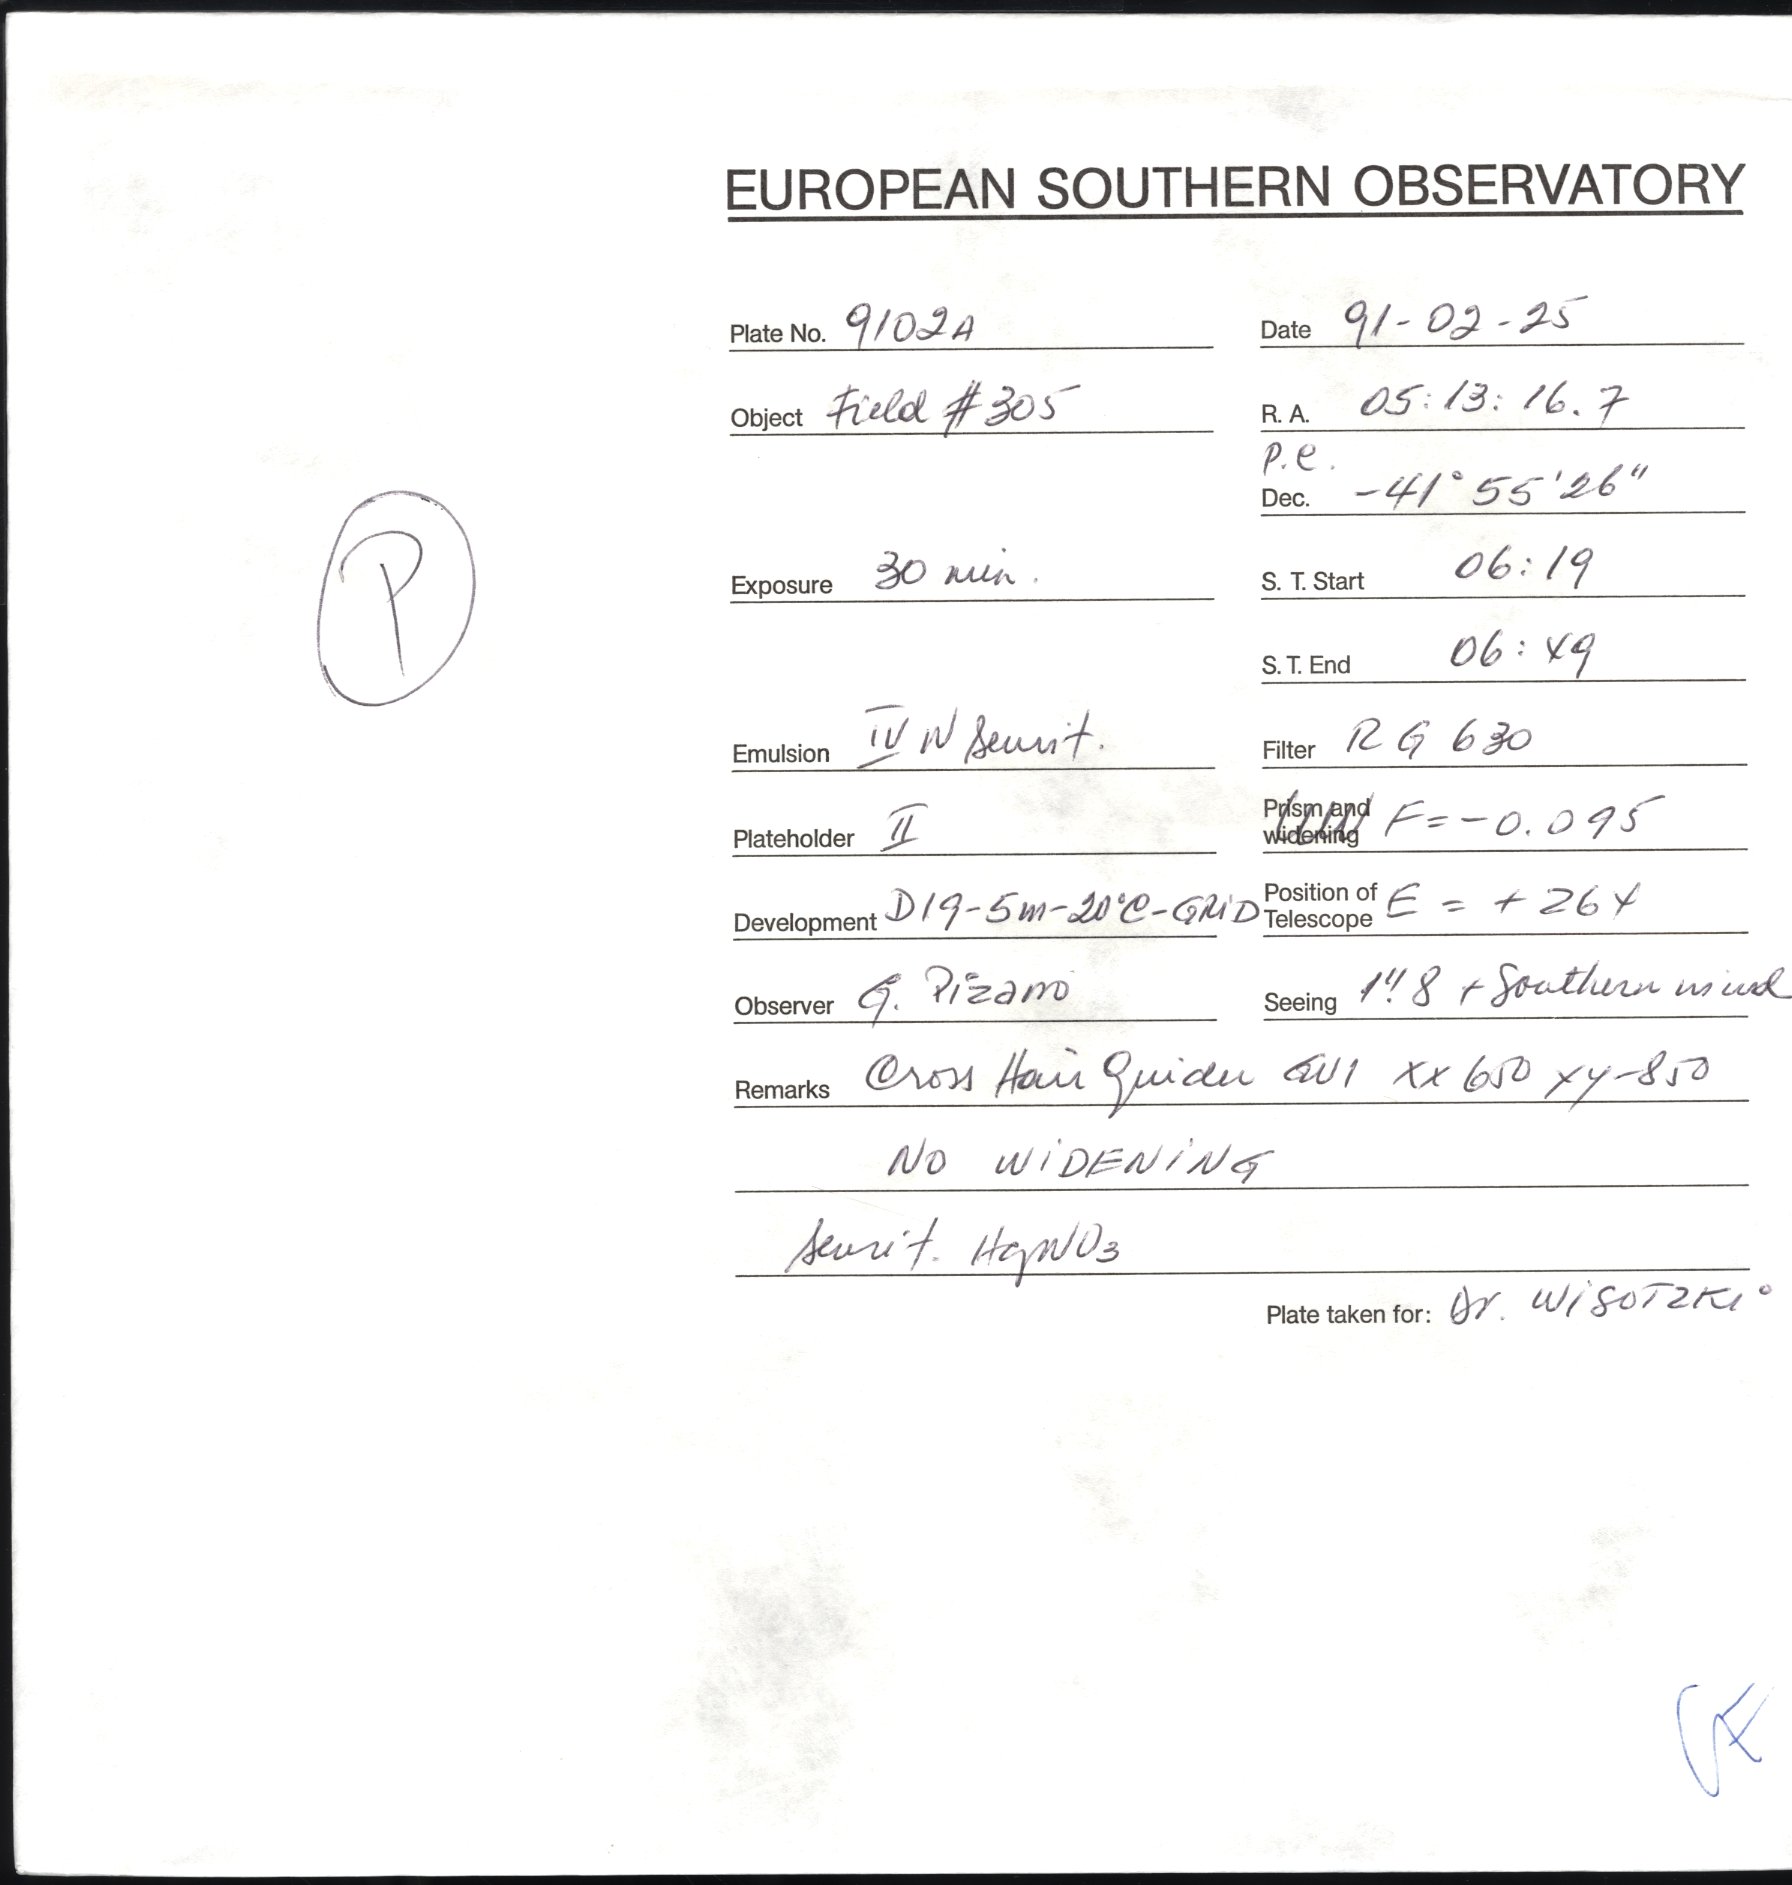 EUROPEAN SOUTHERN OBSERVATORY
Plate No. 9102A Date 91-02-25
Object Field #305 R. A. 05:13:16.7
P.e.
Dec. -41° 55' 26"
P
Exposure 30 min. S. T. Start 06:19
S. T. End 06:49
Emulsion IV N Sensit. Filter RG 630
Plateholder II Prism and widening F=-0.095
Development D19-5m-20°C-GRiD Position of Telescope E = + 264
Observer G. Pizarro Seeing 1".8 + Southern wind
Remarks Cross Hair Guider GV1 XX 650 XY-850
NO WiDENiNG
Sensit. HgNO3
Plate taken for: Dr. WiSOTZKi